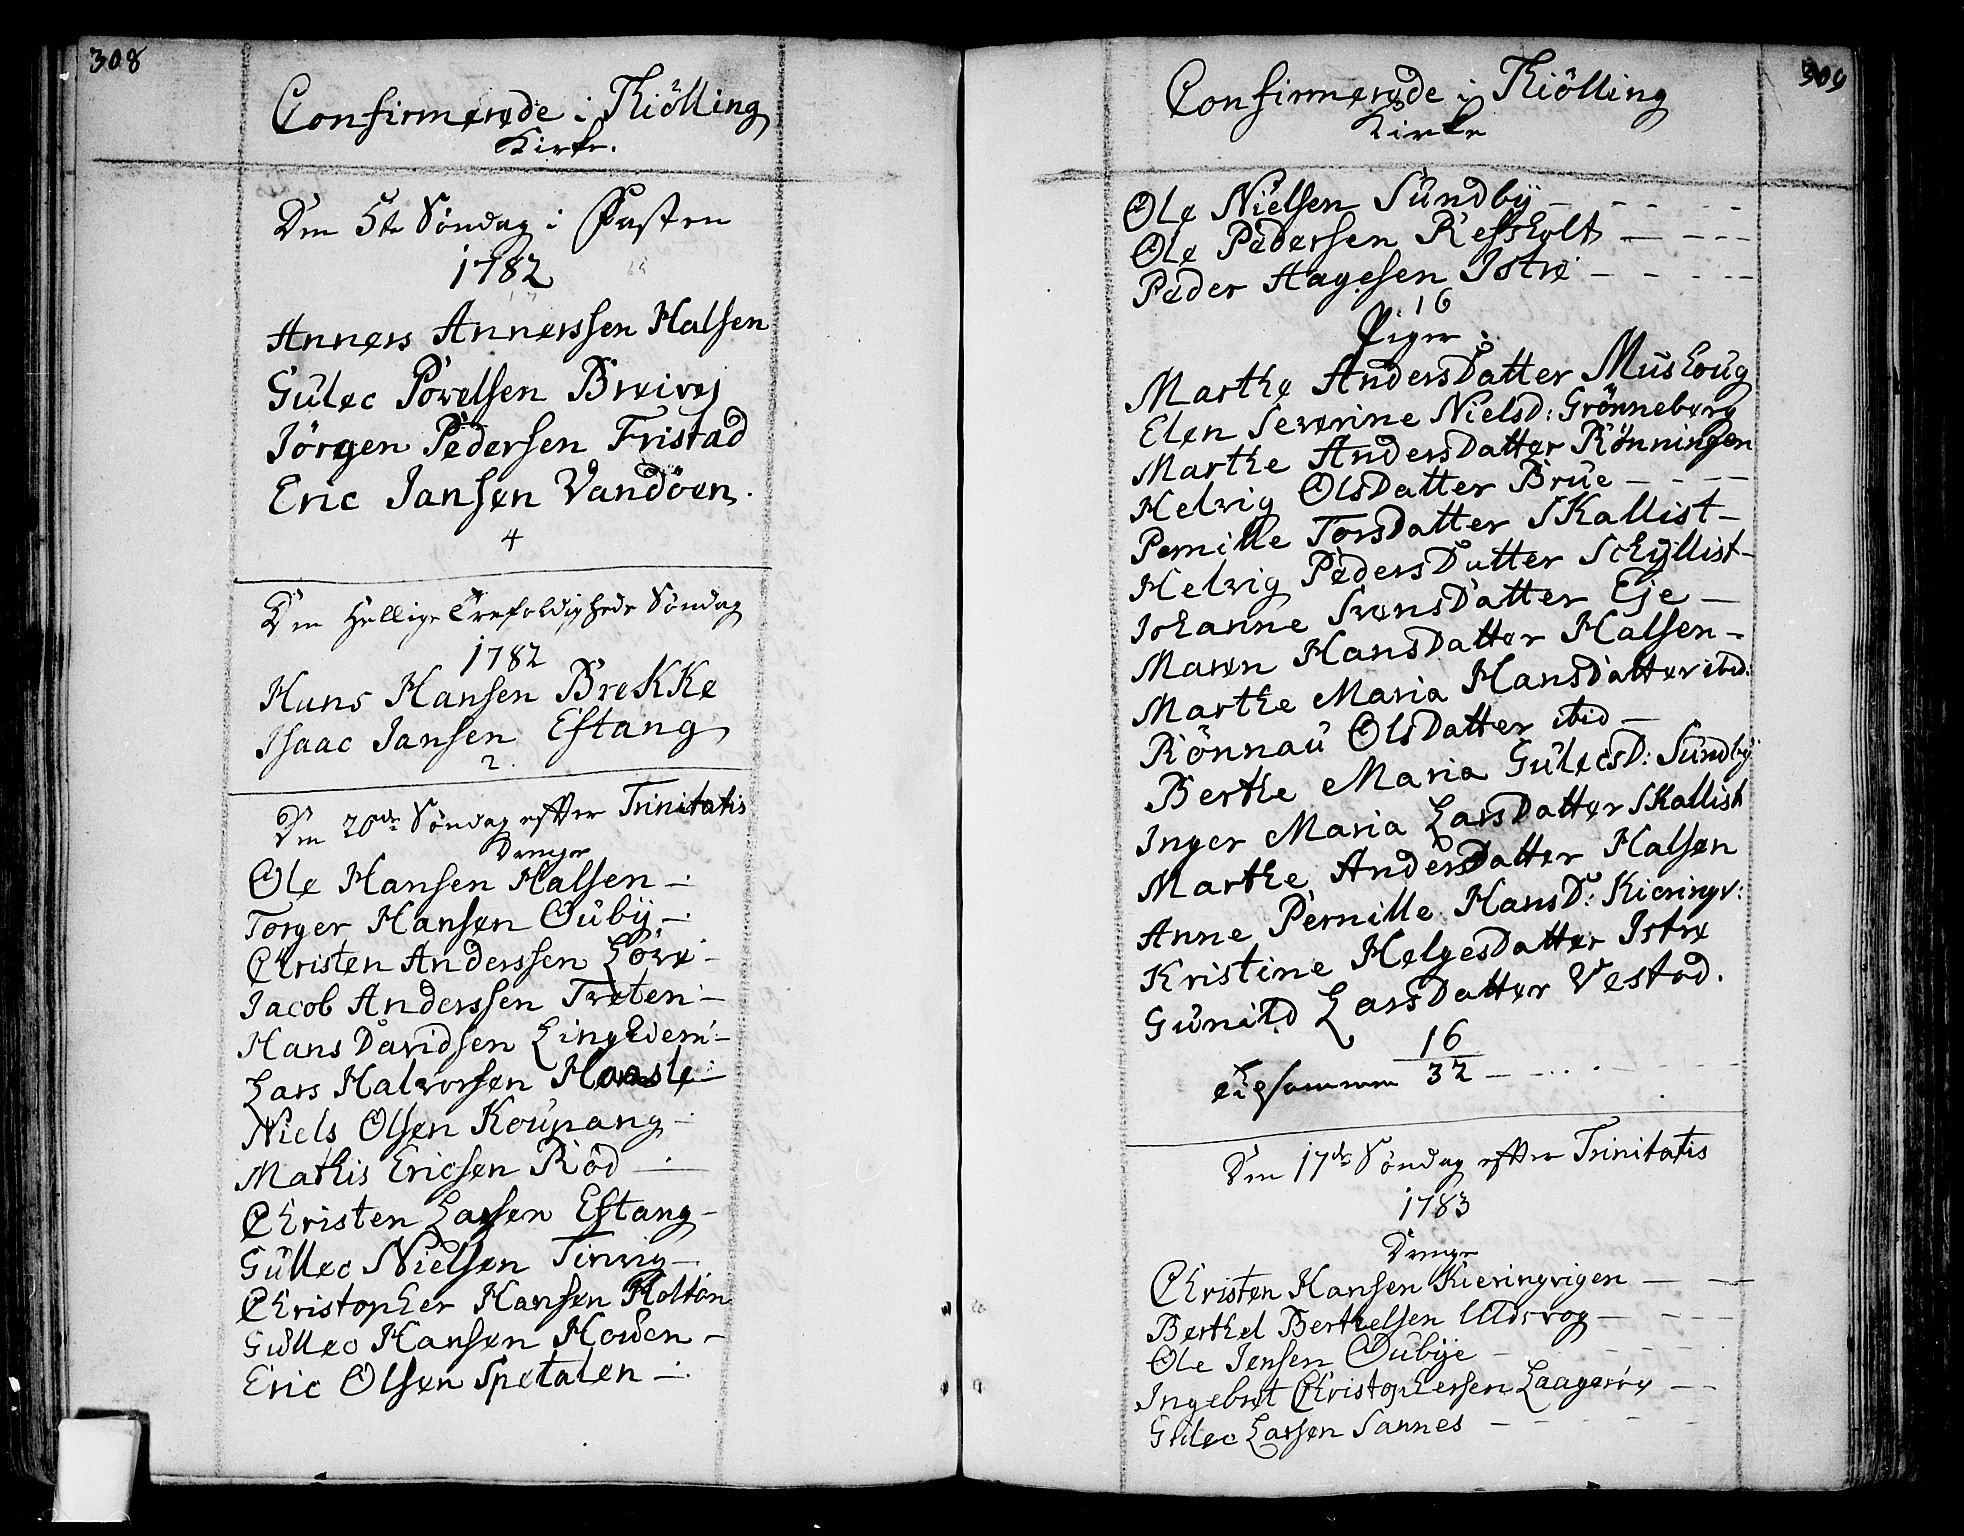 308
Confirmerede i Thiölling
Kirke.
Den 5te Söndag i Fasten
1782
Anners Annerssen Halsen
Gulec Povelsen Breivej
Jörgen Pedersen Fristad
Eric Jansen Vandöen.
4
Den Hellige Trefoldigheds Söndag
1782
Hans Hansen Brekke
Isaac Jansen Eftang
2.
Den 20de Söndag efter Trinitatis
Drenge
Ole Hansen Halsen
Torger Hansen Ouby
Christen Anderssen Löve
Jacob Anderssen Treten
Hans Davidsen Lingelem
Lars Halvorsen
Niels Olsen Koupang
Mathis Ericsen Röd
Christen Larsen Eftang
Gullec Nielsen Tinvig
Christopher Hansen Holtan
Gullec Hansen Houen
Eric Olsen Spetalen
309
Confirmerede i Thiölling
Kirke
Ole Nielsen Sundby
Ole Pedersen Refsholt
Peder Hagesen Istre
16
Piger
Marthe AndersDatter Musloug
Elen Severine Nielsd: Grönneberg
Marthe AndersDatter Rönningen
Helvig OlsDatter Brue
Pernille TorsDatter Skallist
Helvig PedersDatter Schyllist
Johanne SvensDatter Eje
Maren HansDatter Halsen
Marthe Maria HansDatter ibid:
Rönnau OlsDatter ibid
Berthe Maria GulecsD: Sundby
Inger Maria LarsDatter Skallist
Marthe AndersDatter Halsen
Anne Pernille HansD: Kieringv:
Kristine HelgesDatter Istre
Gunild LarsDatter Vestad.
16
tilsammen 32
Den 17de Söndag efter Trinitatis
1783
Drenge
Christen Hansen Kieringvigen
Berthel Berthelsen Uldsvog
Ole Jensen Oubye
Ingebret Christophersen Laageröe
Gulec Larsen Sannes